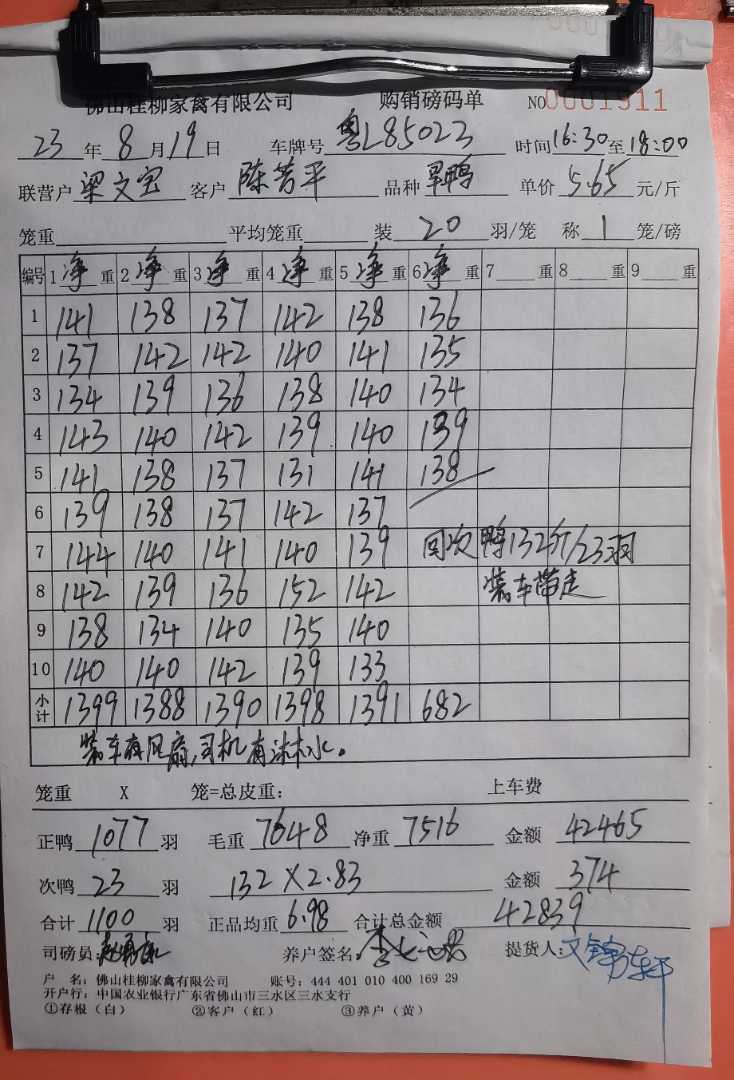 佛山桂柳家禽有限公司 购销磅码单 NO 0001911
23 年 8 月 19 日 车牌号 粤L85023 时间 16:30 至 18:00
联营户 梁文宝 客户 陈芳平 品种 旱鸭 单价 5.65 元/斤
笼重 平均笼重 装 20 羽/笼 称 1 笼/磅
编号 1 净 重 2 净 重 3 净 重 4 净 重 5 净 重 6 净 重 7 重 8 重 9 重
1 141 138 137 142 138 136
2 137 142 142 140 141 135
3 134 139 136 138 140 134
4 143 140 142 139 140 139
5 141 138 137 131 141 138
6 139 138 137 142 137
7 144 140 141 140 139 回次鸭132斤/23羽
8 142 139 136 152 142 装车带走
9 138 134 140 135 140
10 140 140 142 139 133
小计 1399 1388 1390 1398 1391 682
装车有风扇,司机有淋水。
笼重 X 笼=总皮重: 上车费
正鸭 1077 羽 毛重 7648 净重 7516 金额 42465
次鸭 23 羽 132×2.83 金额 374
合计 1100 羽 正品均重 6.98 合计总金额 42839
司磅员: 养户签名: 提货人:
户 名: 佛山桂柳家禽有限公司 账号: 444 401 010 400 169 29
开户行: 中国农业银行广东省佛山市三水区三水支行
①存根(白) ②客户(红) ③养户(黄)